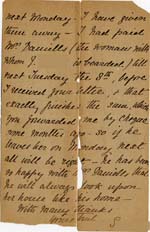 next Monday - I have given
them away - I had paid
Mrs Daniells (the woman with
whom J. is boarded) till
next Tuesday the 8th, before
I received your letter, & that
exactly finished the sum which
you forwarded me by cheque
some months ago - so if he
leaves her on Monday next
all will be right - He has been
so happy with Mrs Daniells that
he will always look upon
her house like his home -
With many thanks